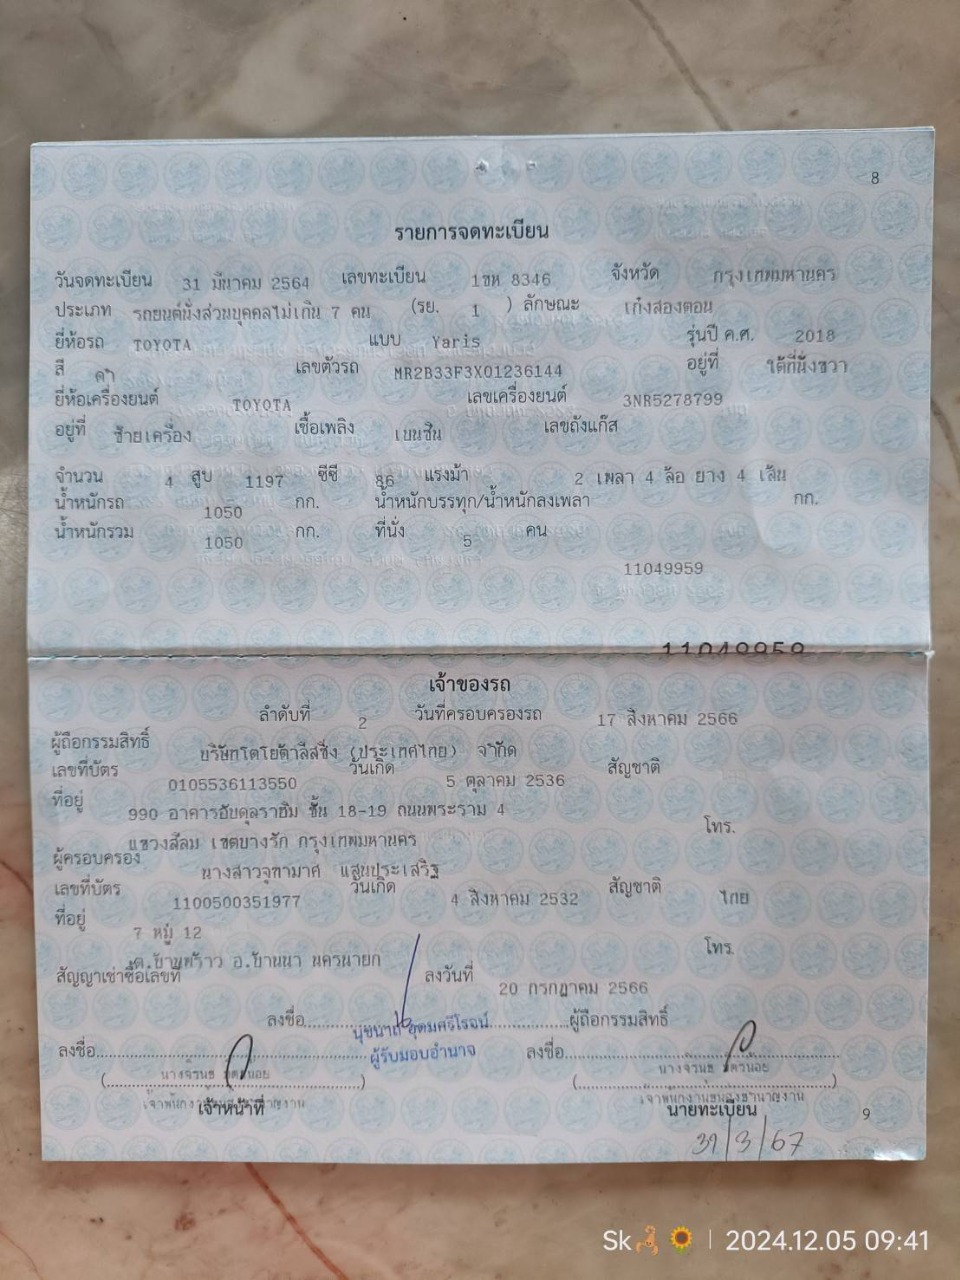 8
รายการจดทะเบียน
วันจดทะเบียน 31 มีนาคม 2564 เลขทะเบียน 1ขห 8346 จังหวัด กรุงเทพมหานคร
ประเภท รถยนต์นั่งส่วนบุคคลไม่เกิน 7 คน (รย. 1 ) ลักษณะ เก๋งสองตอน
ยี่ห้อรถ TOYOTA แบบ Yaris รุ่นปี ค.ศ. 2018
สี ดำ เลขตัวรถ MR2B33F3X01236144 อยู่ที่ ใต้ที่นั่งขวา
ยี่ห้อเครื่องยนต์ TOYOTA เลขเครื่องยนต์ 3NR5278799
อยู่ที่ ซ้ายเครื่อง เชื้อเพลิง เบนซิน เลขถังแก๊ส
จำนวน 4 สูบ 1197 ซีซี 86 แรงม้า 2 เพลา 4 ล้อ ยาง 4 เส้น
น้ำหนักรถ 1050 กก. น้ำหนักบรรทุก/น้ำหนักลงเพลา กก.
น้ำหนักรวม 1050 กก. ที่นั่ง 5 คน
11049959
11049959
เจ้าของรถ
ลำดับที่ 2 วันที่ครอบครองรถ 17 สิงหาคม 2566
ผู้ถือกรรมสิทธิ์ บริษัทโตโยต้าลีสซิ่ง (ประเทศไทย) จำกัด
เลขที่บัตร 0105536113550 วันเกิด 5 ตุลาคม 2536 สัญชาติ
ที่อยู่ 990 อาคารอับดุลราฮิม ชั้น 18-19 ถนนพระราม 4
แขวงสีลม เขตบางรัก กรุงเทพมหานคร โทร.
ผู้ครอบครอง นางสาวจุฑามาศ แสนประเสริฐ
เลขที่บัตร 1100500351977 วันเกิด 4 สิงหาคม 2532 สัญชาติ ไทย
ที่อยู่ 7 หมู่ 12
ต.บ้านพร้าว อ.บ้านนา นครนายก โทร.
สัญญาเช่าซื้อเลขที่ ลงวันที่ 20 กรกฎาคม 2566
ลงชื่อ ผู้ถือกรรมสิทธิ์
นุชนาถ อุดมศรีโรจน์
ผู้รับมอบอำนาจ
ลงชื่อ ลงชื่อ
เจ้าหน้าที่ นายทะเบียน
9
31/3/67
Sk | 2024.12.05 09:41